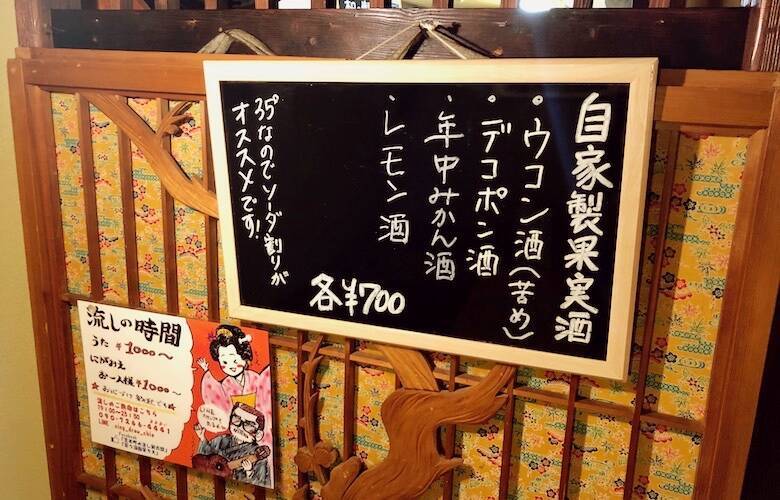 自家製果実酒
・ウコン酒(苦め)
・デコポン酒
・年中みかん酒
・レモン酒
各¥700
35°なのでソーダ割りが
オススメです!
流しの時間
うた ¥1000〜
にがおえ
お一人様¥1000〜
流しのご依頼はこちら
LINE